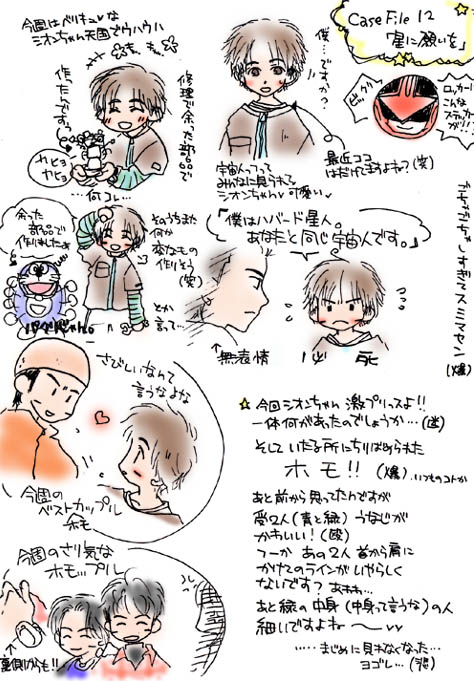 今週はベリキュ〜♥な
シオンちゃん天国でウハウハ
もきゅもきゅ
修理で余った部品で
作ったんですっ
カピョ
カピョ
…何コレ…
僕…ですか?
宇宙人っつって
みんなに見られてっ
シオンちゃん可愛い♥
最近ココ
はだけてますよね?(笑)
Case File 12
「星に願いを」
ビクッ
ロッカーに
こんな
ステッカー
が!!
ゴチャゴチャしすぎてスミマセン(爆)
余った
部品で
作りましたよ
パクリじゃん。
そのうちまた
何か
変なもの
作りそう
(笑)
とか
言って…
「僕はハバード星人。
あなたと同じ宇宙人です。」
↑無表情
必死
さびしいなんて
言うなよ
今週の
ベストカップル
ホモ
☆今回シオンちゃん激プリっスよ!!
一体何があったのでしょうか…(謎)
そしていたる所にちりばめられた
ホモ!!(爆)いつものコトか
あと前から思ってたんですが
受2人(青と緑)うなじが
かわいい!(殴)
つーかあの2人首から肩に
かけてのラインがいやらしく
ないです?あわわ…
あと緑の中身(中身って言うな)の人
細いですよね〜
……まじめに見れなくなった…
ヨゴレ…(涙)
今週のさり気な
ホモップル
↑
裏側からも!!